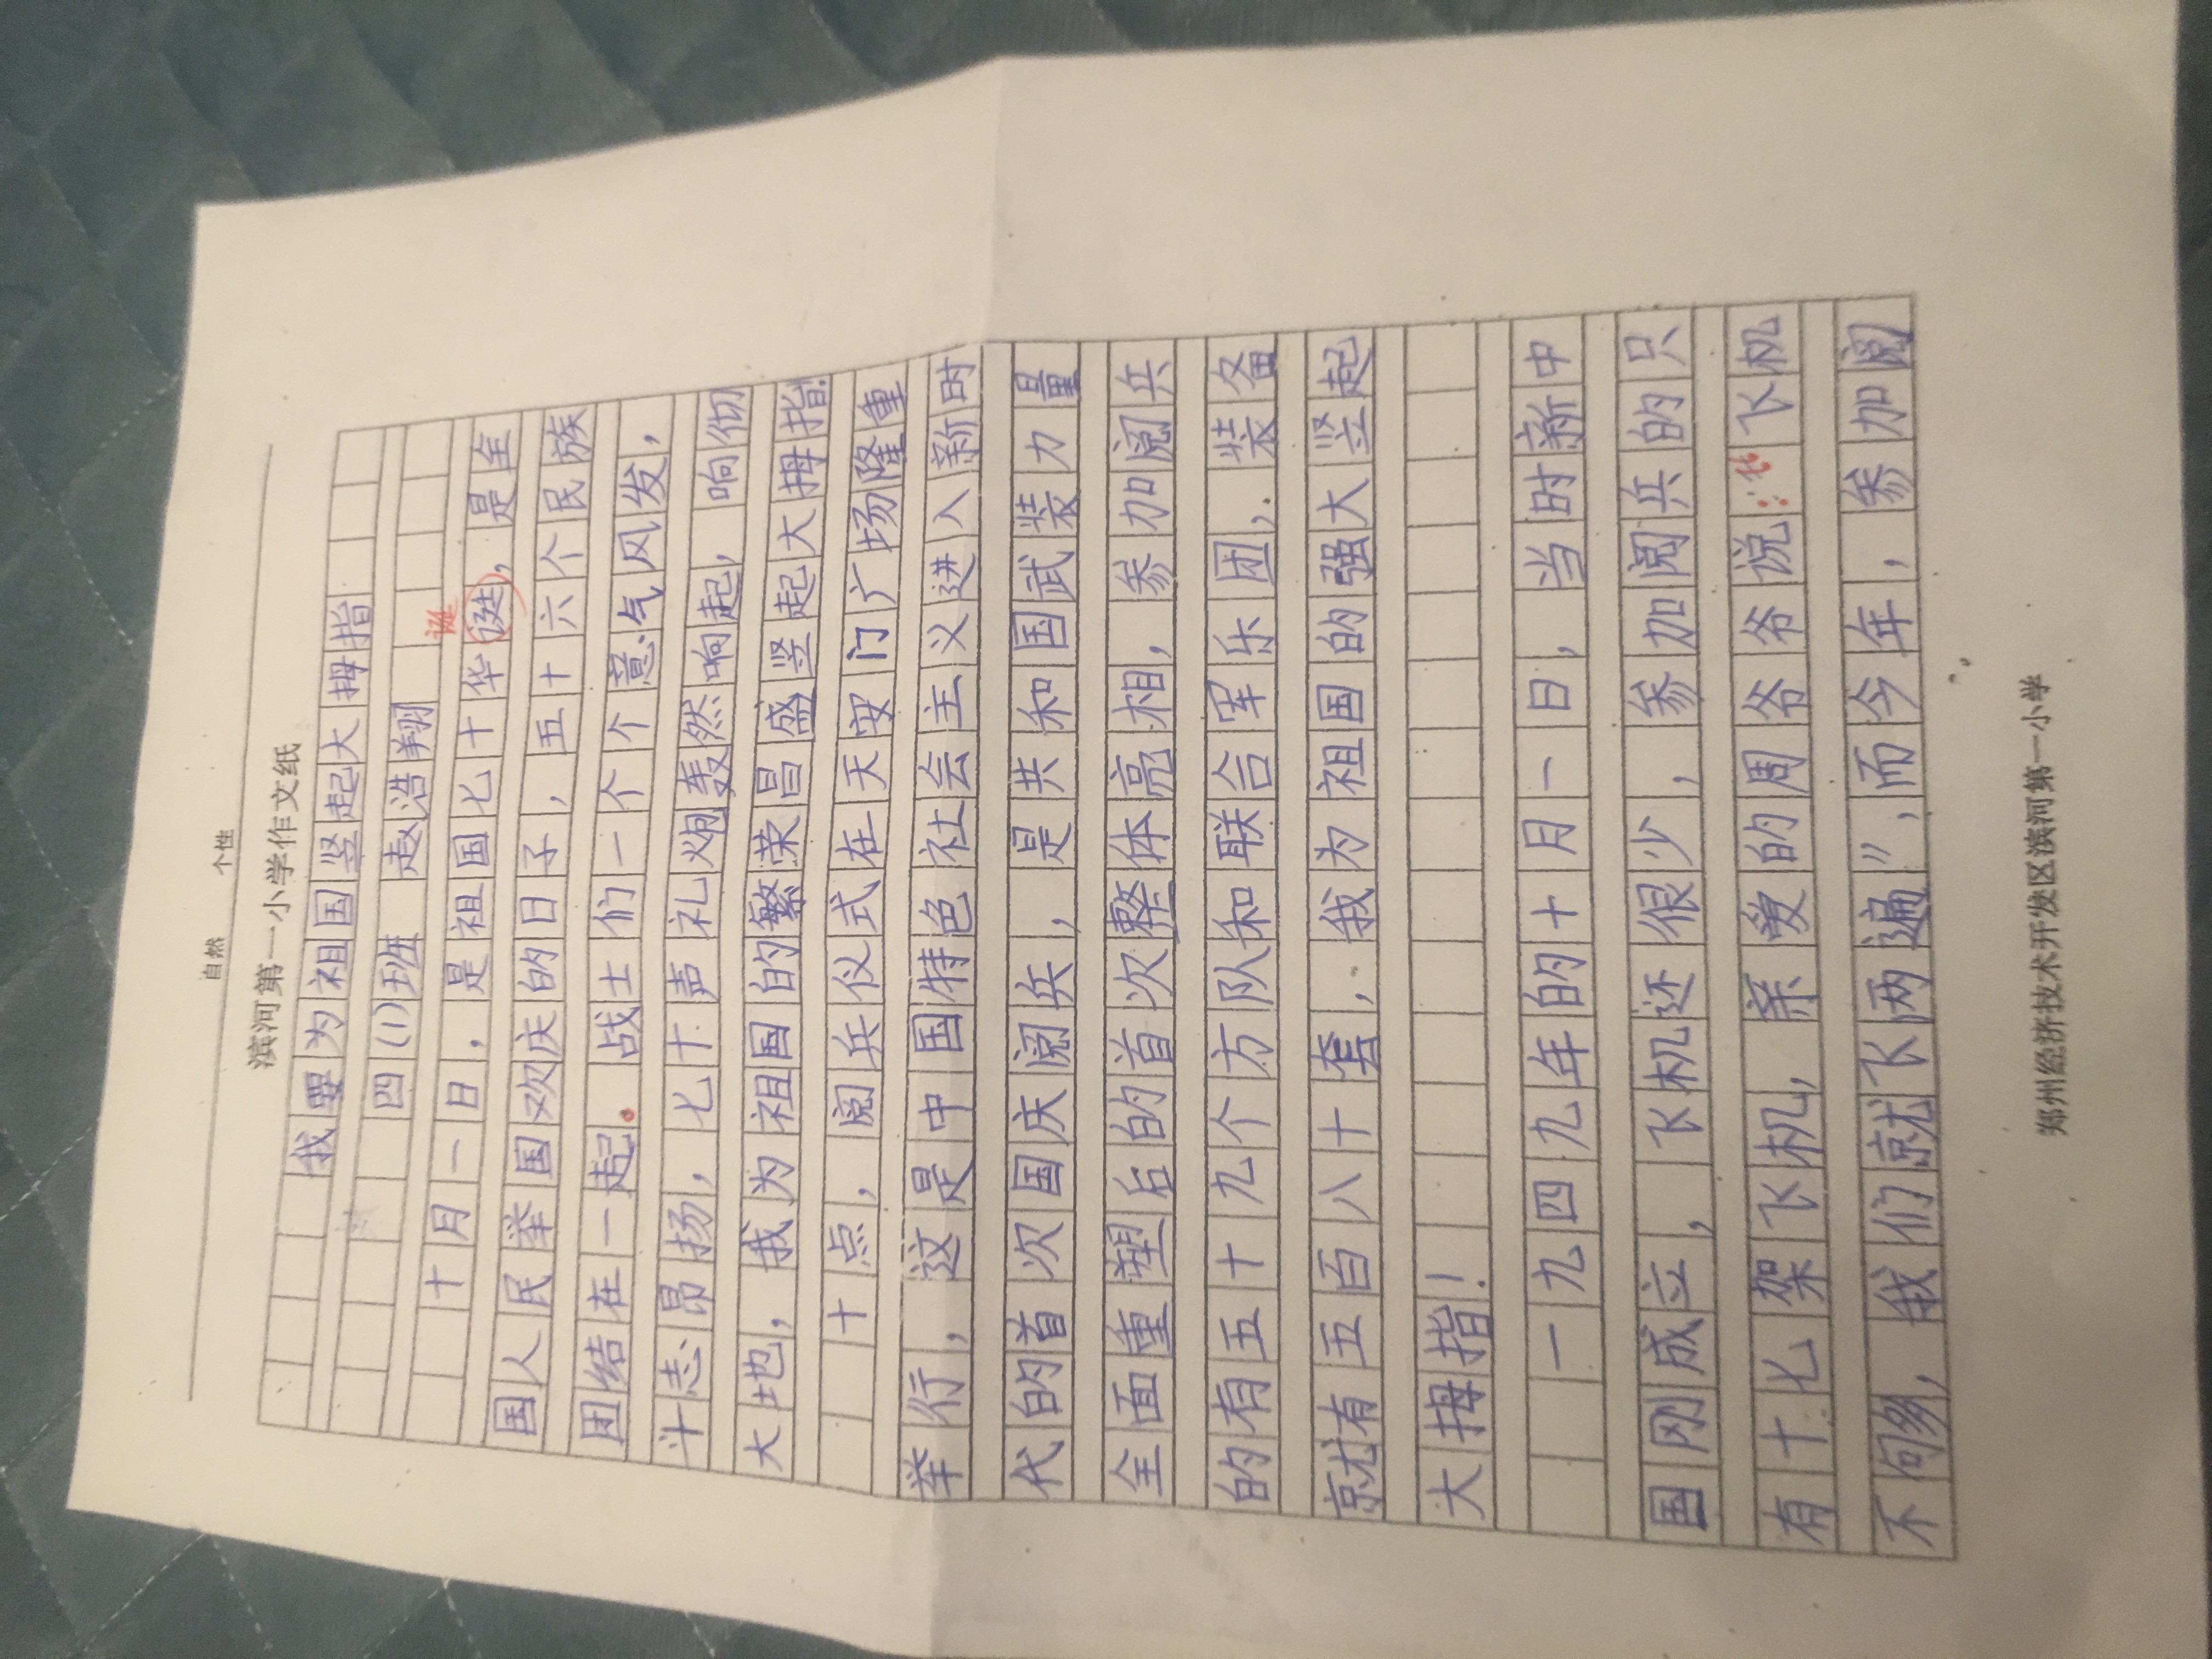 自然 个性
滨河第一小学作文纸
我要为祖国竖起大拇指
四(1)班 赵浩翔
诞
十月一日，是祖国七十华诞，是全
国人民举国欢庆的日子，五十六个民族
团结在一起。战士们一个个意气风发，
斗志昂扬，七十声礼炮轰然响起，响彻
大地，我为祖国的繁荣昌盛竖起大拇指！
十点，阅兵仪式在天安门广场隆重
举行，这是中国特色社会主义进入新时
代的首次国庆阅兵，是共和国武装力量
全面重塑后的首次整体亮相，参加阅兵
的有五十九个方队和联合军乐团，装备
就有五百八十套，我为祖国的强大竖起
大拇指！
一九四九年的十月一日，当时新中
国刚成立，飞机还很少，参加阅兵的只
有十七架飞机，亲爱的周爷爷说：“飞机
不够多，我们就飞两遍”，而今年，参加阅
郑州经济技术开发区滨河第一小学